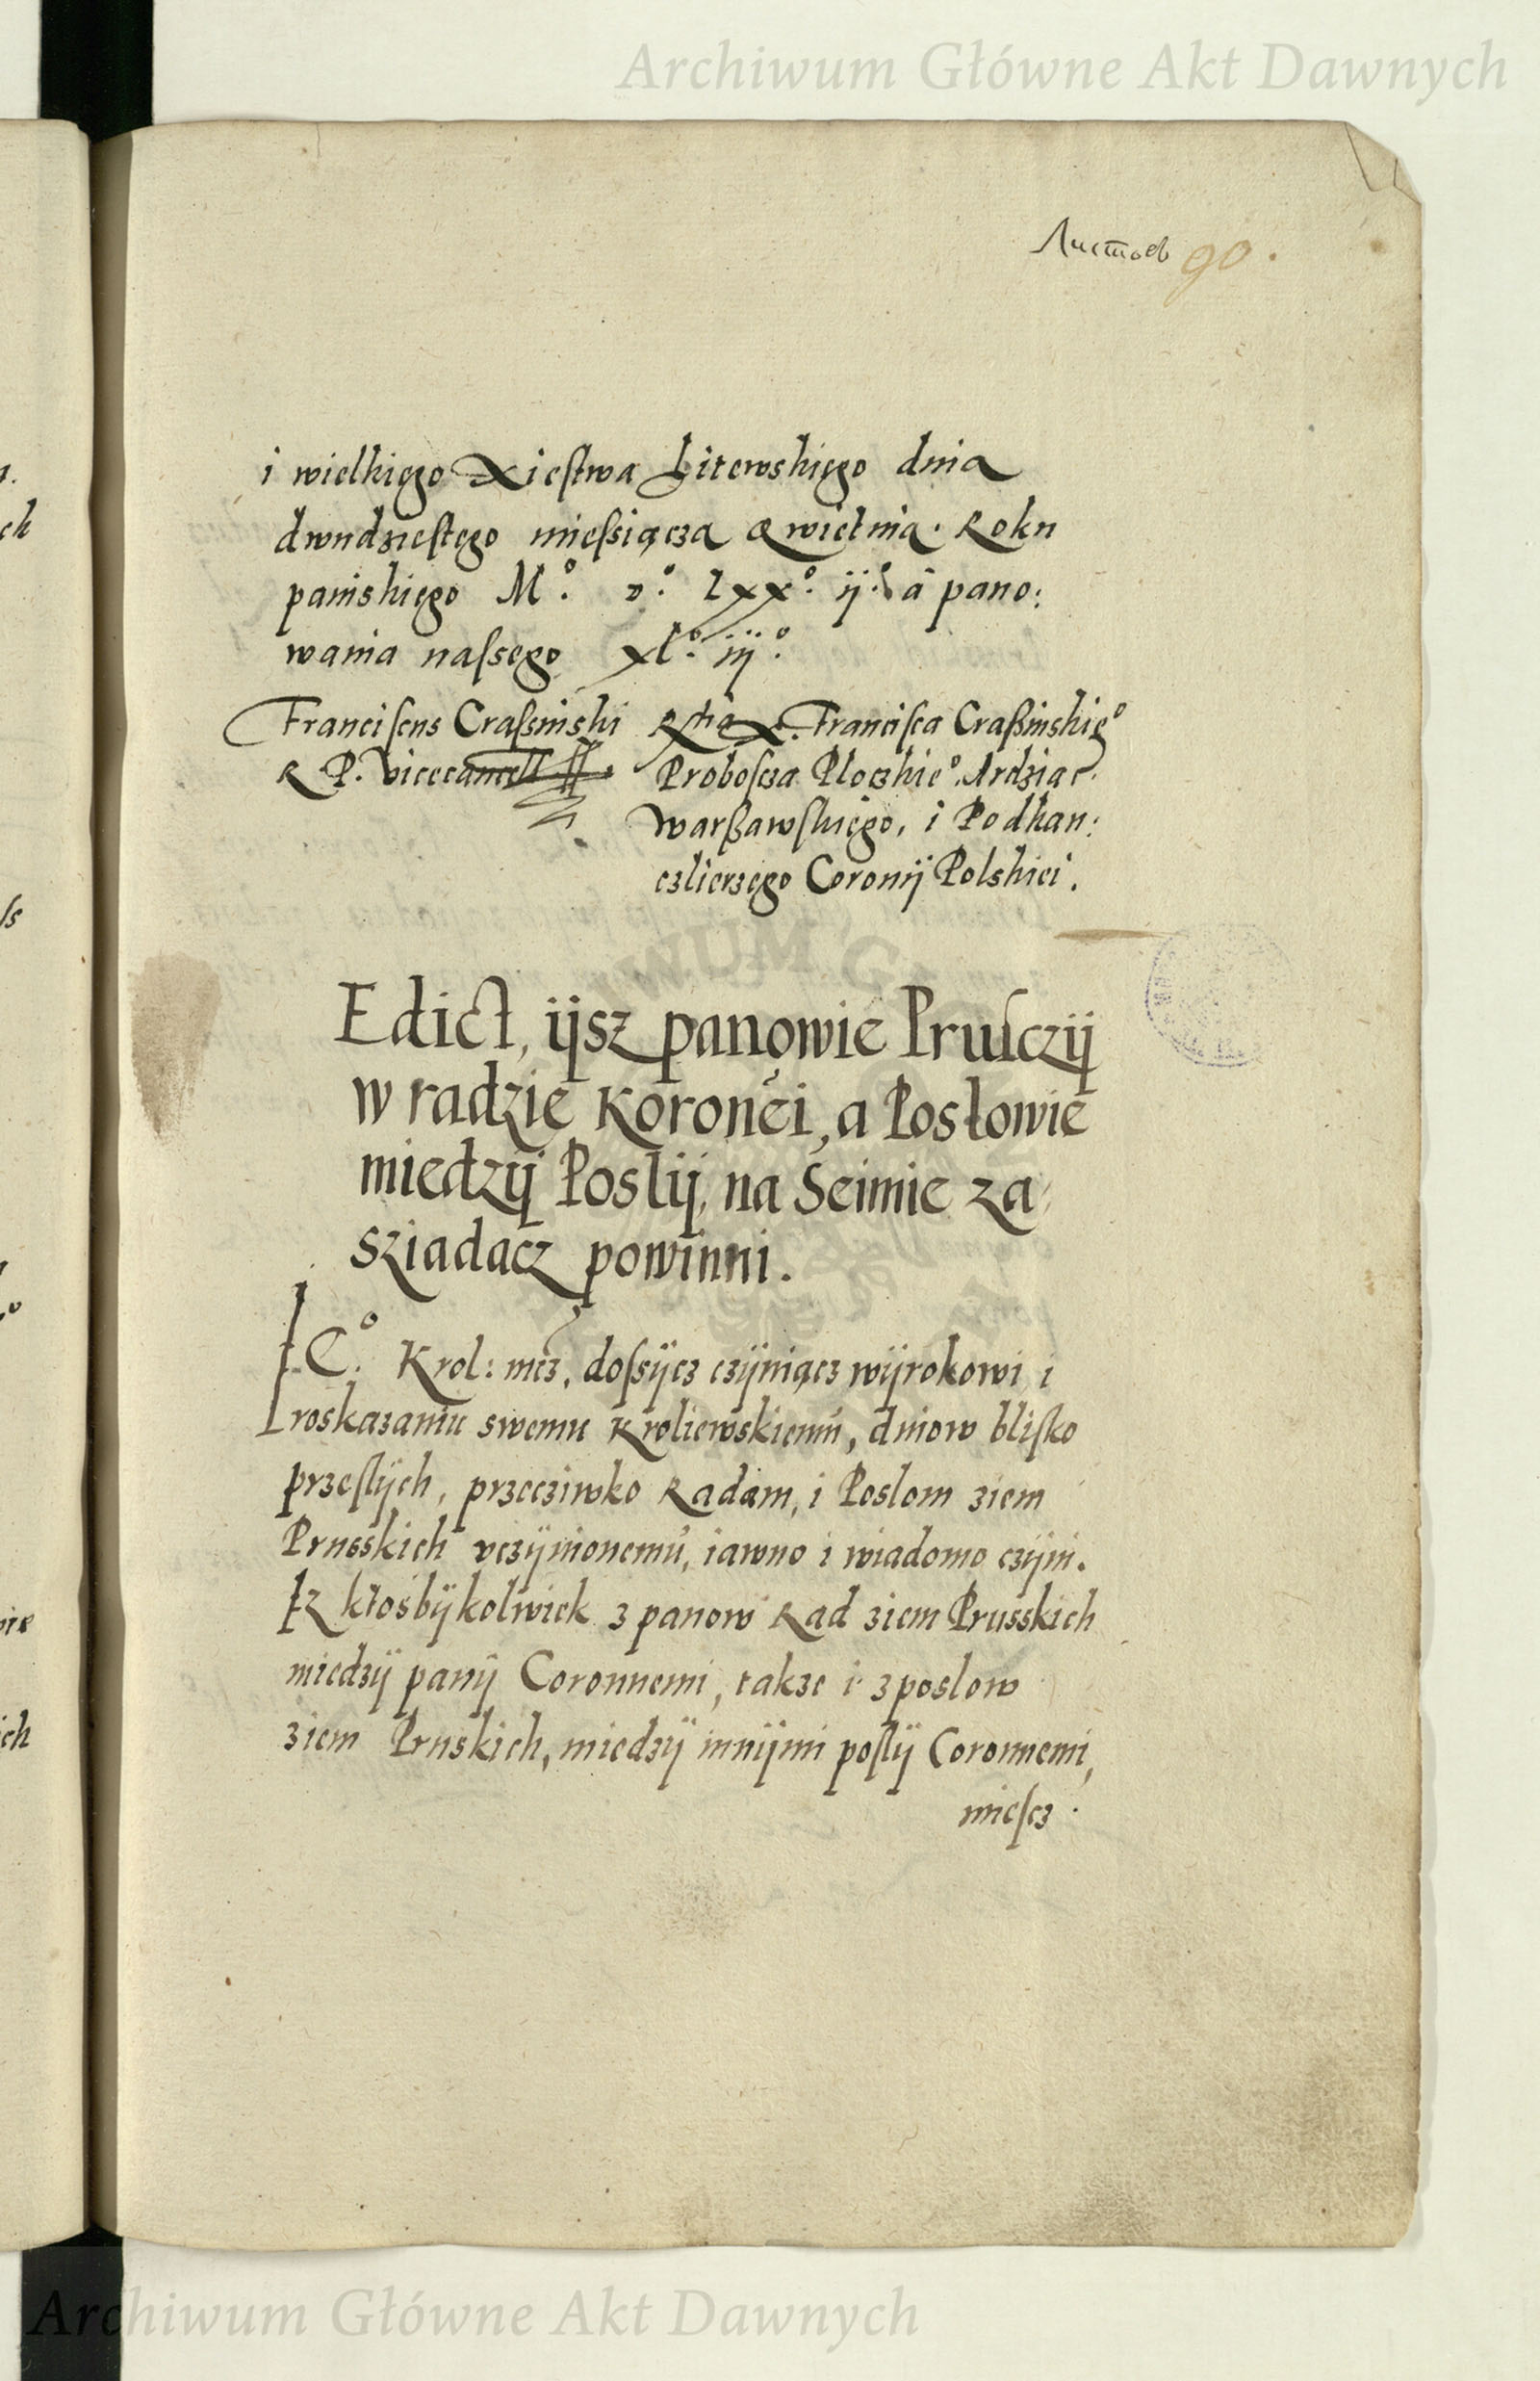 Archiwum Główne Akt Dawnych
Листовъ 90.
i wielkiego Xięstwa Litewskiego dnia
dwudziestego miessiącza Qwietnia. Roku
panskiego M.º D.º lxx.º ij.º a pano:
wania nassego xl.º iij.º
Franciscus Crassinski
R P. Vicecancell
Rtia X. Francisca Craßinskiegº
Proboscza Płoczkieº. Ardziac.
Warßawskiego, i Podkan:
czlierzego Coronij Polskiei.
Edict, ijsz panowie Prusczij
w radzie Koronei, a Posłowie
miedzij Poslij, na Seimie za
sziadacz powinni.
Iº C. Krol: mcz, dossijcz czijniącz wijrokowi i
roskazaniu swemu Kroliewskiemu, dniow blisko
przeslijch, przecziwko Radam, i Poslom ziem
Prusskich vczijnionemu, iawno i wiadomo czijni.
Iz ktosbijkolwiek z panow Rad ziem Prusskich
miedzij panij Coronnemi, takze i z poslow
ziem Pruskich, miedzij innijmi poslij Coronnemi,
miescz
Archiwum Główne Akt Dawnych